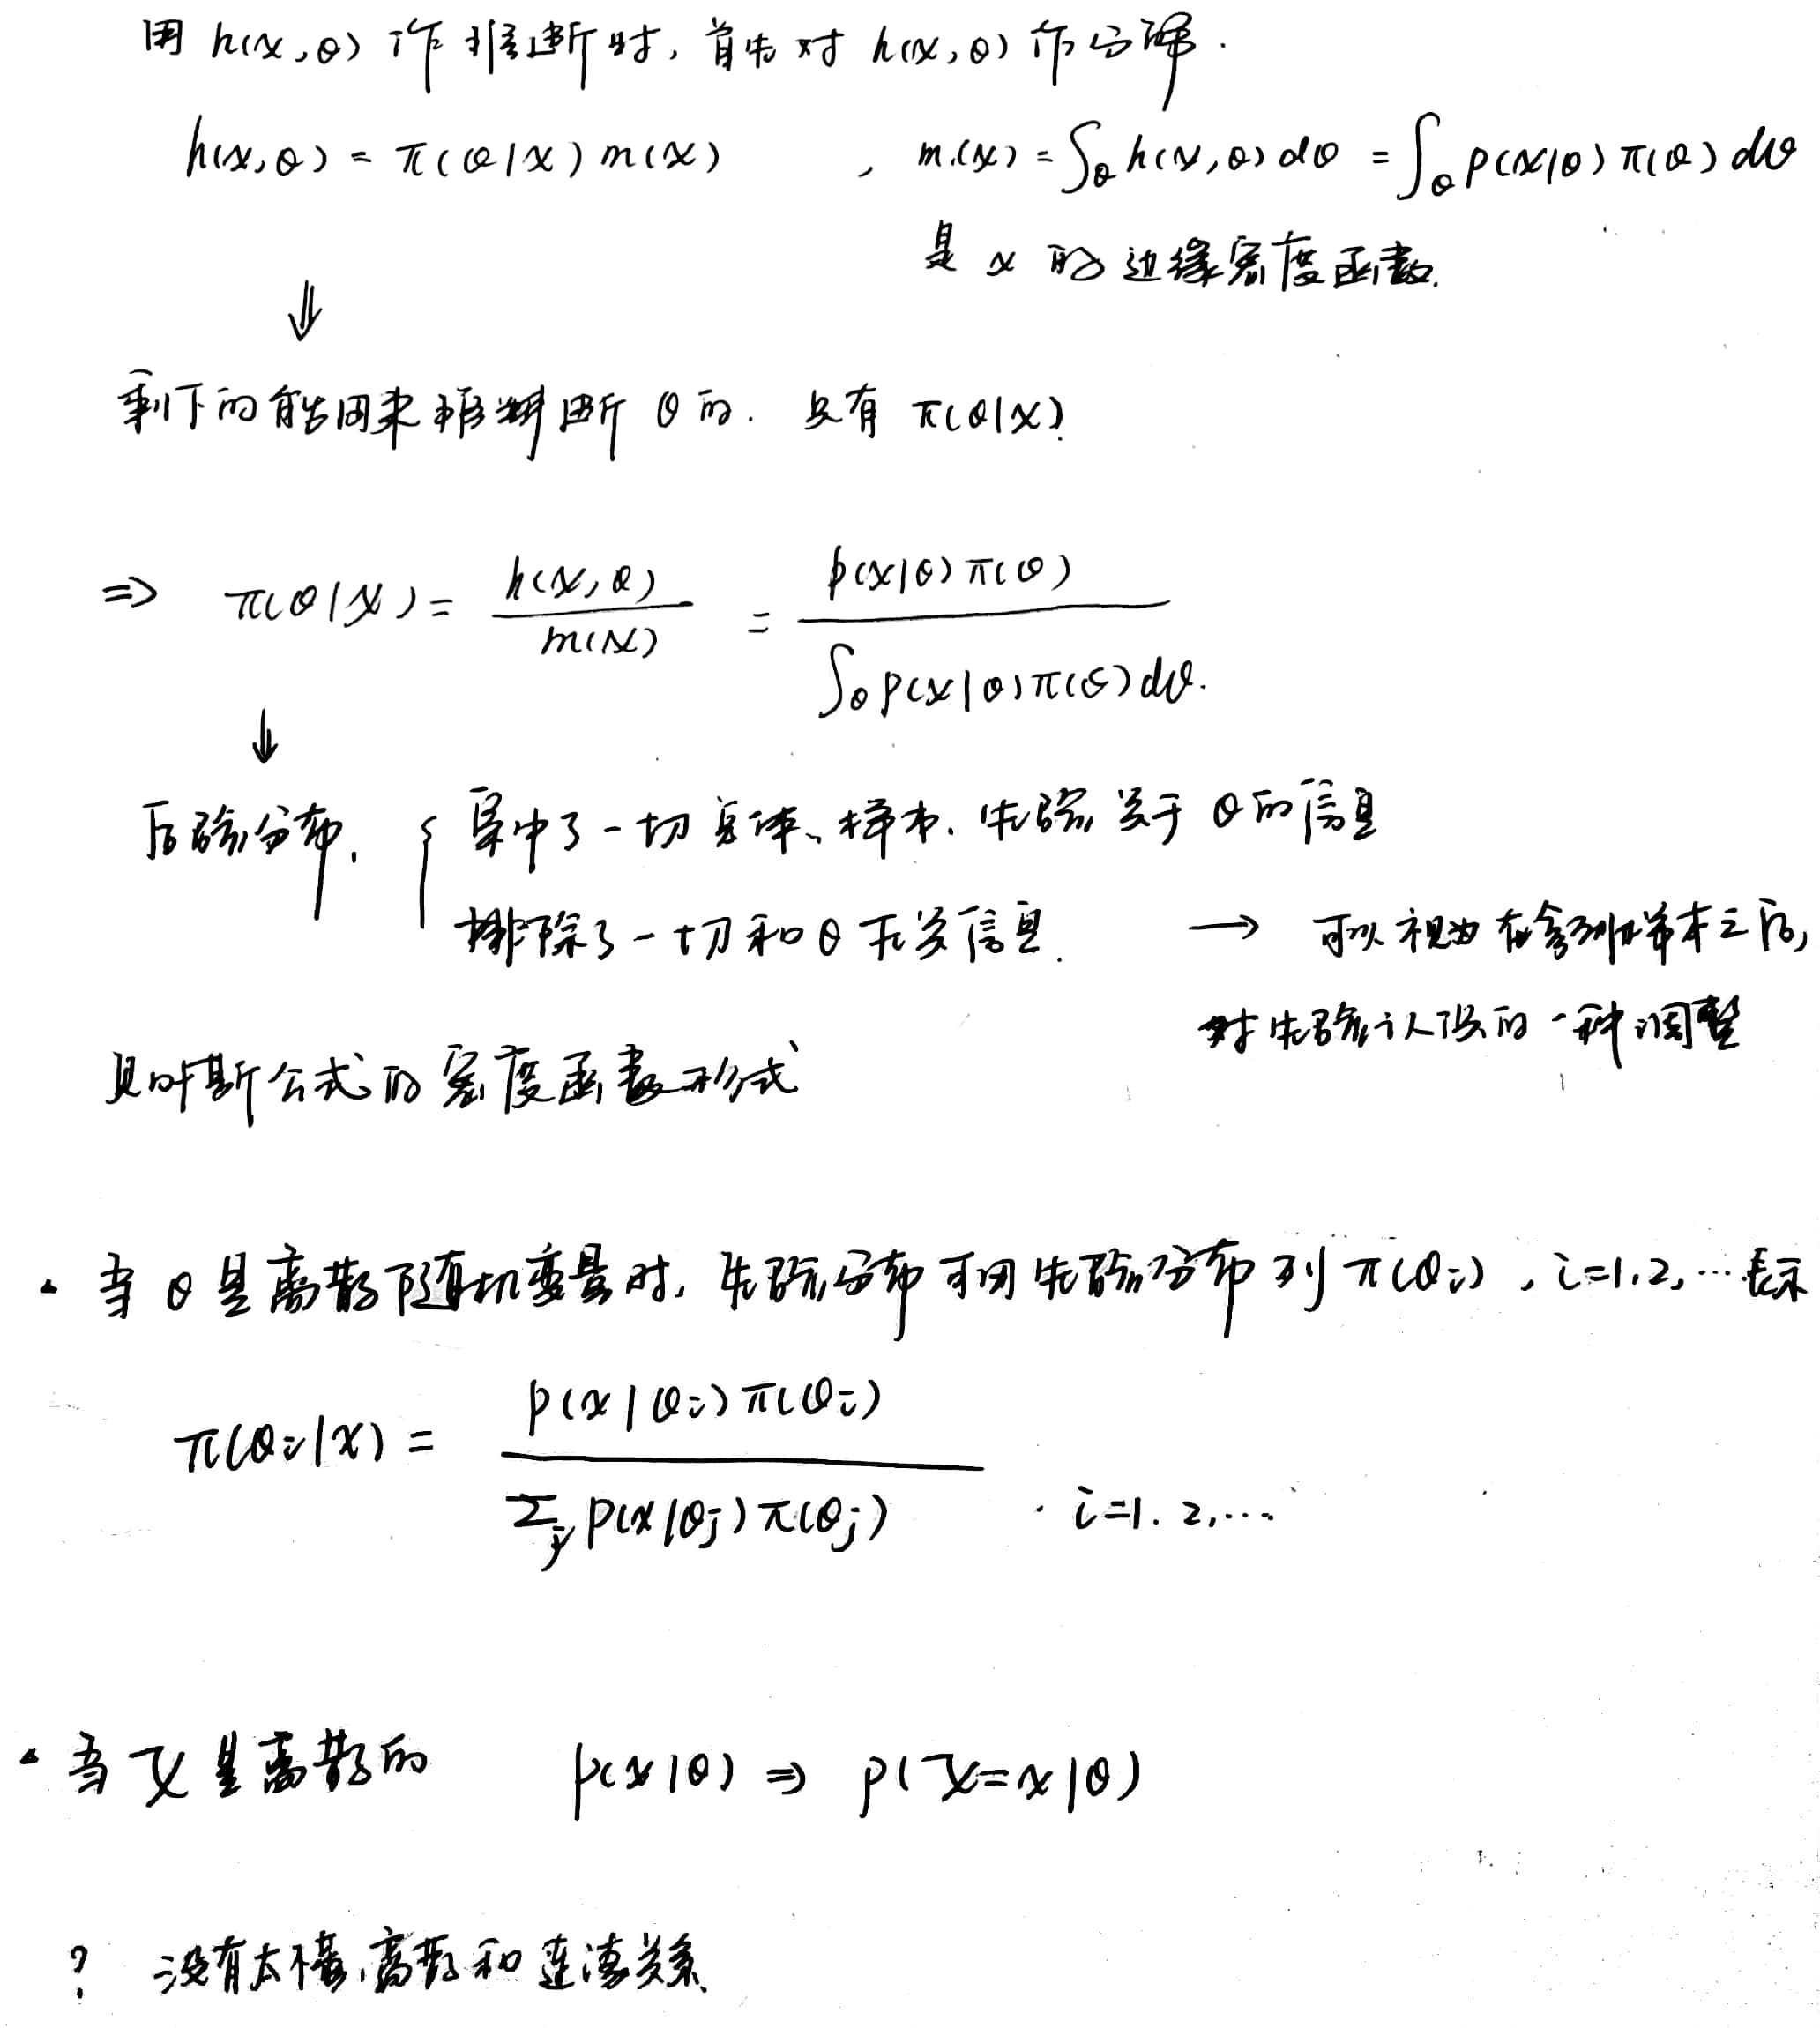 用 h(x,θ) 作推断时, 首先对 h(x,θ) 作分解.
h(x,θ) = π(θ|x) m(x) , m(x) = ∫_θ h(x,θ) dθ = ∫_θ p(x|θ) π(θ) dθ
是 x 的 边缘密度函数.
⇓
剩下的能用来推断 θ 的. 只有 π(θ|x).
⇒ π(θ|x) = h(x,θ) / m(x) = p(x|θ) π(θ) / ∫_θ p(x|θ) π(θ) dθ.
↓
后验分布. { 集中了一切总体、样本、先验关于 θ 的信息
排除了一切和 θ 无关信息. → 可以视为在拿到样本之后,
对先验认识的一种调整
贝叶斯公式的密度函数形式
· 当 θ 是离散随机变量时, 先验分布可用先验分布列 π(θi) , i=1,2,… 表示
π(θi|x) = p(x|θi) π(θi) / Σ_j p(x|θj) π(θj) . i=1.2,…
· 当 X 是离散的 p(x|θ) ⇒ p(X=x|θ)
? 没有太懂, 离散和连续关系